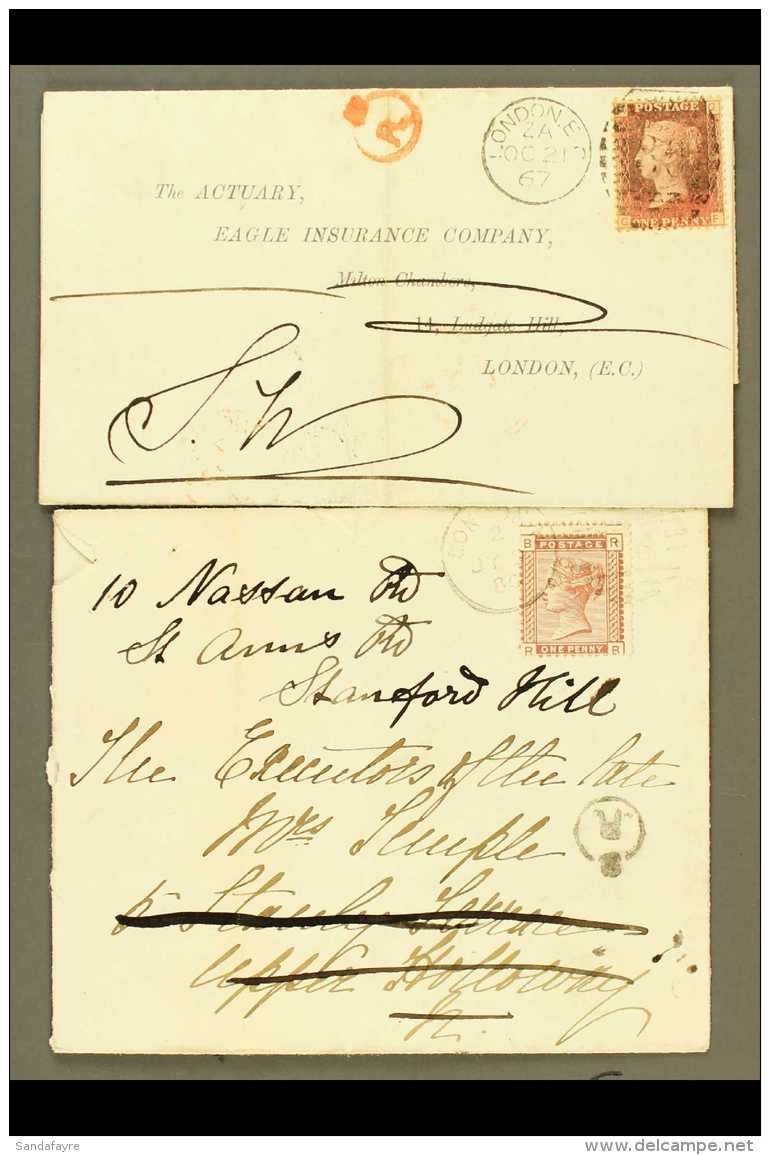 R
LONDON.E.C
ZA
OC 21
67
POSTAGE
ONE PENNY
The ACTUARY,
EAGLE INSURANCE COMPANY,
Milton Chambers,
14, Ludgate Hill,
LONDON, (E.C.)
S.W
B POSTAGE R
R ONE PENNY B
10 Nassau Rd
St Anns Rd
Stamford Hill
The Executors of the late
Mrs Temple
5 Stanley Terrace
Upper Holloway
N.
R
Sandafayre
www.delcampe.net